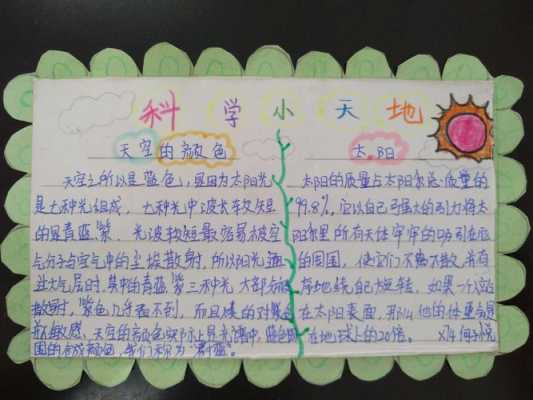 科学小天地
天空的颜色
天空之所以是蓝色,是因为太阳光
是七种光组成,七种光中波长较短
的是青蓝紫,光波较短最容易被空
气分子与空气中的尘埃散射,所以阳光通
过大气层时,其中的青蓝紫三种光大部分被
散射,紫色几乎看不到,而且人的对紫色
敏感,天空的颜色实际上是光谱中蓝色
围的合成颜色,我们称为"青蓝"。
太阳
太阳的质量占太阳系总质量的
99.8%,它以自己强大的引力将太
阳系里所有天体牢牢的吸引在它
的周围,使它们不离不散,井有
序地绕自己旋转,如果一个人站
在太阳表面,那么他的体重会是
在地球上的20倍。